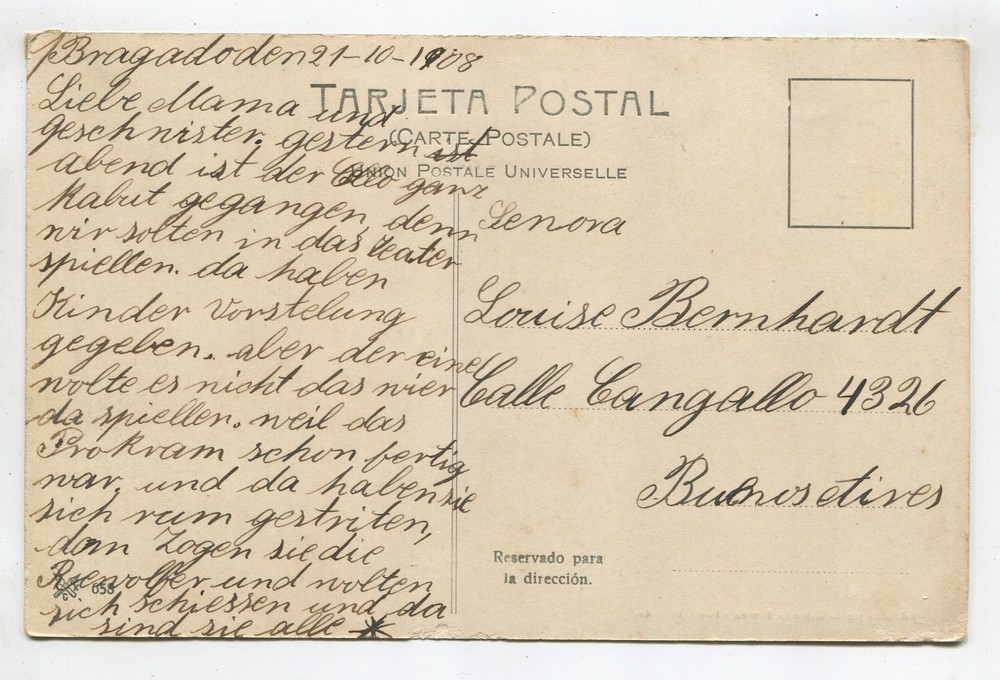 Bragado den 21-10-1908
Liebe Mama und
geschnister. gestern ist
abend ist der ganz
kabut gegangen, denn
wir solten in das teater
spiellen. da haben
Kinder Vorstelung
gegeben. aber der eine
wolte es nicht das wier
da spiellen. weil das
Prokram schon fertig
war. und da haben sie
sich rum gestriten,
dan Zogen sie die
Rewolfer und wolten
sich schiessen und da
sind sie alle *
TARJETA POSTAL
(CARTE POSTALE)
UNION POSTALE UNIVERSELLE
Senora
Louise Bernhardt
Calle Cangallo 4326
Buenos Aires
Reservado para
la dirección.
658